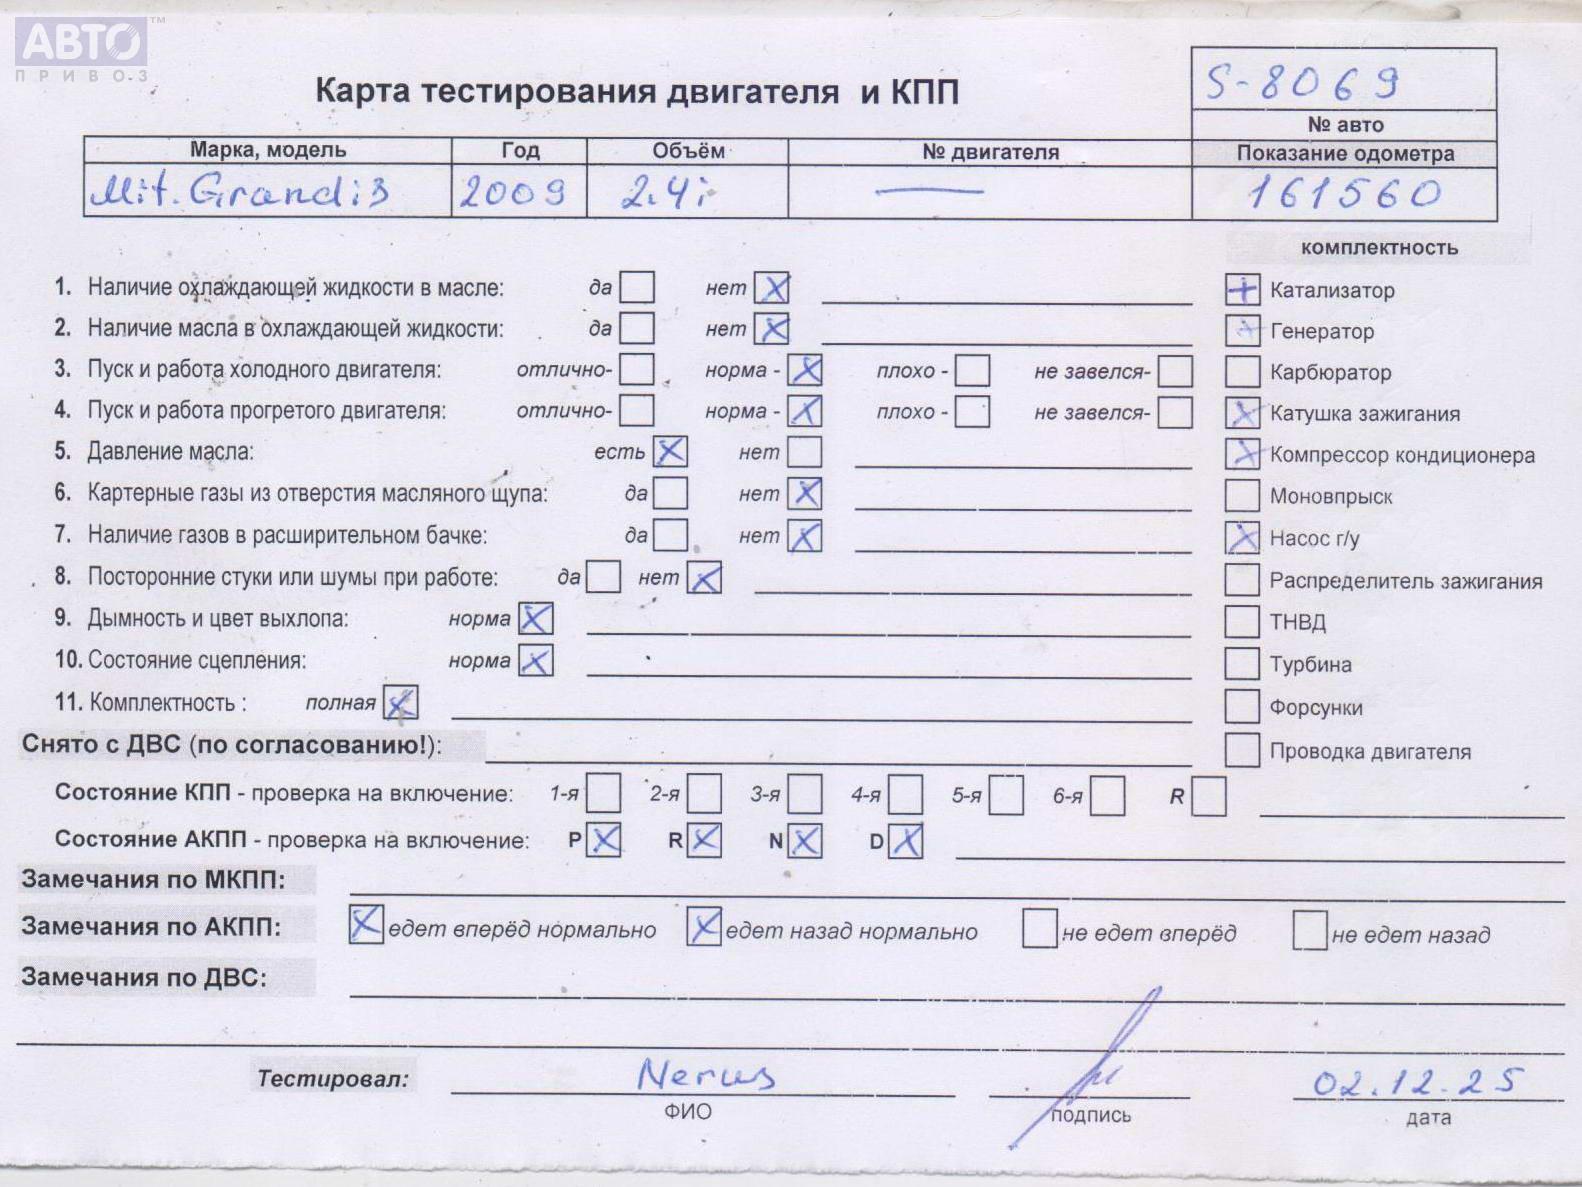 АВТО™
ПРИВОЗ
Карта тестирования двигателя и КПП
S-8069
№ авто
Марка, модель Год Объём № двигателя Показание одометра
Mit. Grandis 2009 2.4i — 161560
комплектность
1. Наличие охлаждающей жидкости в масле: да нет X
+ Катализатор
2. Наличие масла в охлаждающей жидкости: да нет X
+ Генератор
3. Пуск и работа холодного двигателя: отлично- норма - X плохо - не завелся-
Карбюратор
4. Пуск и работа прогретого двигателя: отлично- норма - X плохо - не завелся-
X Катушка зажигания
5. Давление масла: есть X нет
X Компрессор кондиционера
6. Картерные газы из отверстия масляного щупа: да нет X
Моновпрыск
7. Наличие газов в расширительном бачке: да нет X
X Насос г/у
8. Посторонние стуки или шумы при работе: да нет X
Распределитель зажигания
9. Дымность и цвет выхлопа: норма X
ТНВД
10. Состояние сцепления: норма X
Турбина
11. Комплектность : полная X
Форсунки
Снято с ДВС (по согласованию!):
Проводка двигателя
Состояние КПП - проверка на включение: 1-я 2-я 3-я 4-я 5-я 6-я R
Состояние АКПП - проверка на включение: P X R X N X D X
Замечания по МКПП:
Замечания по АКПП: X едет вперёд нормально X едет назад нормально не едет вперёд не едет назад
Замечания по ДВС:
Тестировал: Nerus 02.12.25
ФИО подпись дата